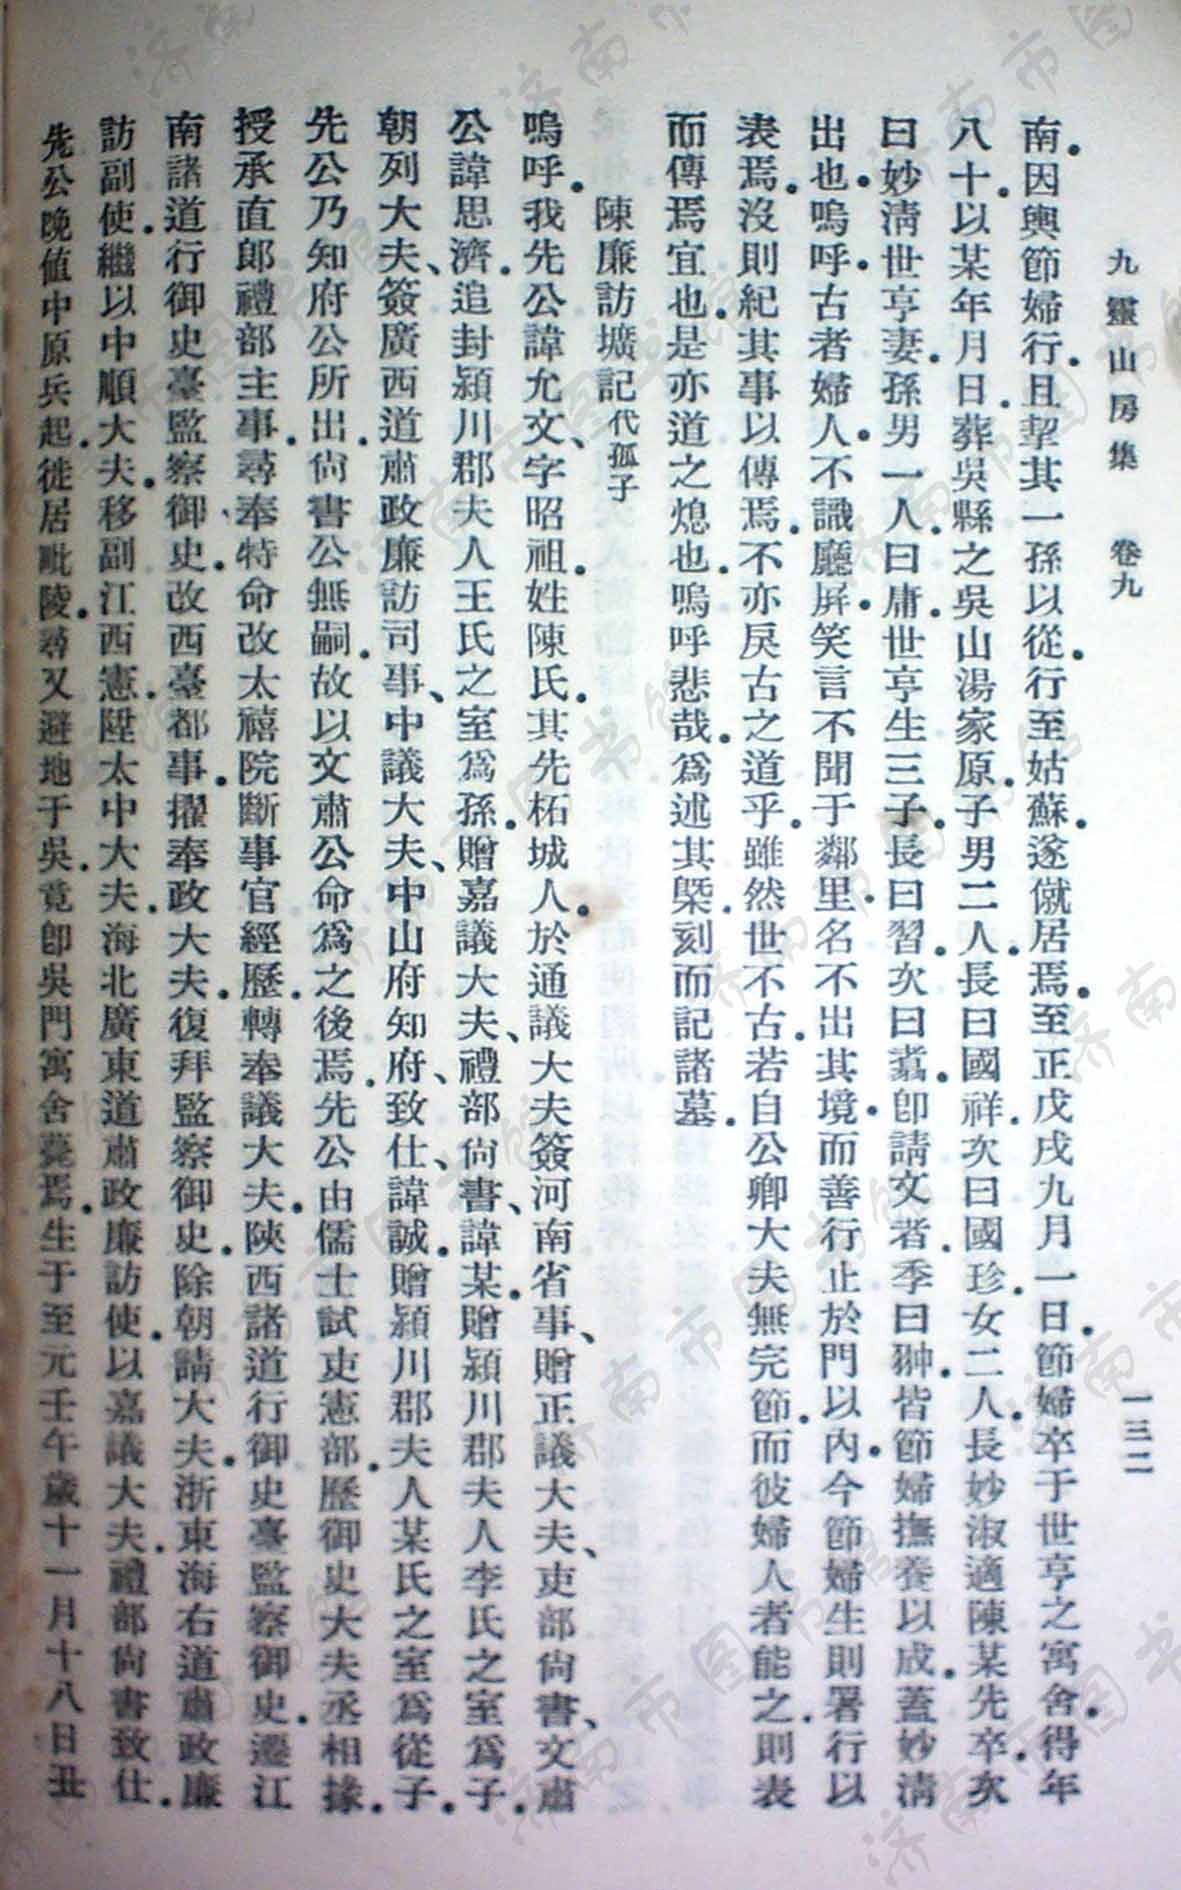 九靈山房集　卷九　一三二
南。因輿節婦行。且挈其一孫以從。行至姑蘇。遂僦居焉。至正戊戌九月一日。節婦卒于世亨之寓舍。得年
八十。以某年月日。葬吳縣之吳山湯家原。子男二人。長曰國祥。次曰國珍。女二人。長妙淑適陳某先卒。次
曰妙清世亨妻。孫男一人。曰庸。世亨生三子。長曰習。次曰翥。卽請文者。季曰翀。皆節婦撫養以成。蓋妙清
出也。嗚呼。古者婦人。不識廳屏。笑言不聞于鄰里。名不出其境。而善行止於門以內。今節婦生則署行以
表焉。沒則紀其事以傳焉。不亦戾古之道乎。雖然世不古。若自公卿大夫無完節。而彼婦人者能之。則表
而傳焉宜也。是亦道之熄也。嗚呼悲哉。爲述其槩。刻而記諸墓。
陳廉訪壙記代孤子
嗚呼。我先公諱允文、字昭祖。姓陳氏。其先柘城人。於通議大夫簽河南省事、贈正議大夫、吏部尙書、文肅
公諱思濟。追封潁川郡夫人王氏之室爲孫。贈嘉議大夫、禮部尙書、諱某。贈潁川郡夫人李氏之室爲子。
朝列大夫、簽廣西道肅政廉訪司事、中議大夫、中山府知府、致仕、諱誠。贈潁川郡夫人某氏之室爲從子。
先公乃知府公所出。尙書公無嗣。故以文肅公命爲之後焉。先公由儒士試吏憲部。歷御史大夫丞相掾。
授承直郞禮部主事。尋奉特命改太禧院斷事官經歷。轉奉議大夫。陝西諸道行御史臺監察御史。遷江
南諸道行御史臺監察御史。改西臺都事。擢奉政大夫。復拜監察御史。除朝請大夫。浙東海右道肅政廉
訪副使。繼以中順大夫。移副江西憲。陞太中大夫。海北廣東道肅政廉訪使。以嘉議大夫。禮部尙書致仕。
先公晚值中原兵起。徙居毗陵。尋又避地于吳。竟卽吳門寓舍薨焉。生于至元壬午歲十一月十八日丑